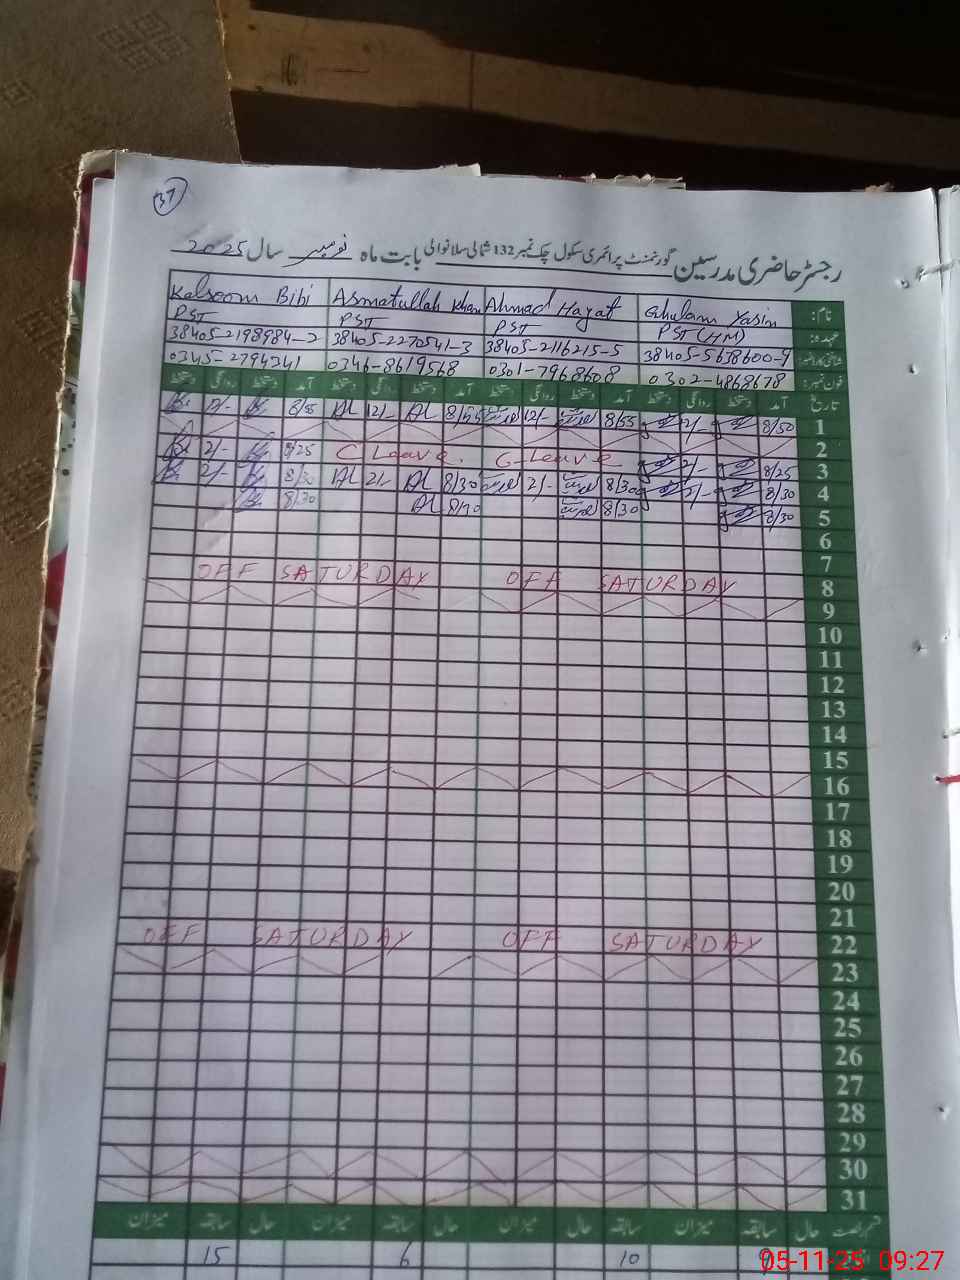 37
رجسٹر حاضری مدرسین گورنمنٹ پرائمری سکول چک نمبر 132 شمالی سلانوالی بابت ماہ نومبر سال 2025
نام: Ghulam Yasin Ahmad Hayat Asmatullah Khan Kalsoom Bibi
عہدہ: PST (HM) PST PST PST
38405-5638600-9 38405-2116215-5 38405-2270541-3 38405-2198984-2
فون نمبر: 0302-4868678 0301-7968608 0346-8619568 0345-2794241
تاریخ آمد دستخط روانگی دستخط آمد دستخط روانگی دستخط آمد دستخط روانگی دستخط آمد دستخط روانگی دستخط
1 8/50 12/- 8/55 12/- 8/55 12/- 8/55 12/-
2
3 8/25 2/- C Leave C Leave. 8/25 2/-
4 8/30 2/- 8/30 2/- 8/30 2/- 8/30 2/-
5 8/30 8/30 8/30 8/30
6
7
8 OFF SATURDAY OFF SATURDAY
9
10
11
12
13
14
15
16
17
18
19
20
21
22 OFF SATURDAY OFF SATURDAY
23
24
25
26
27
28
29
30
31
حال سابقہ میزان حال سابقہ میزان حال سابقہ میزان حال سابقہ میزان
10 6 15
05-11-25 09:27